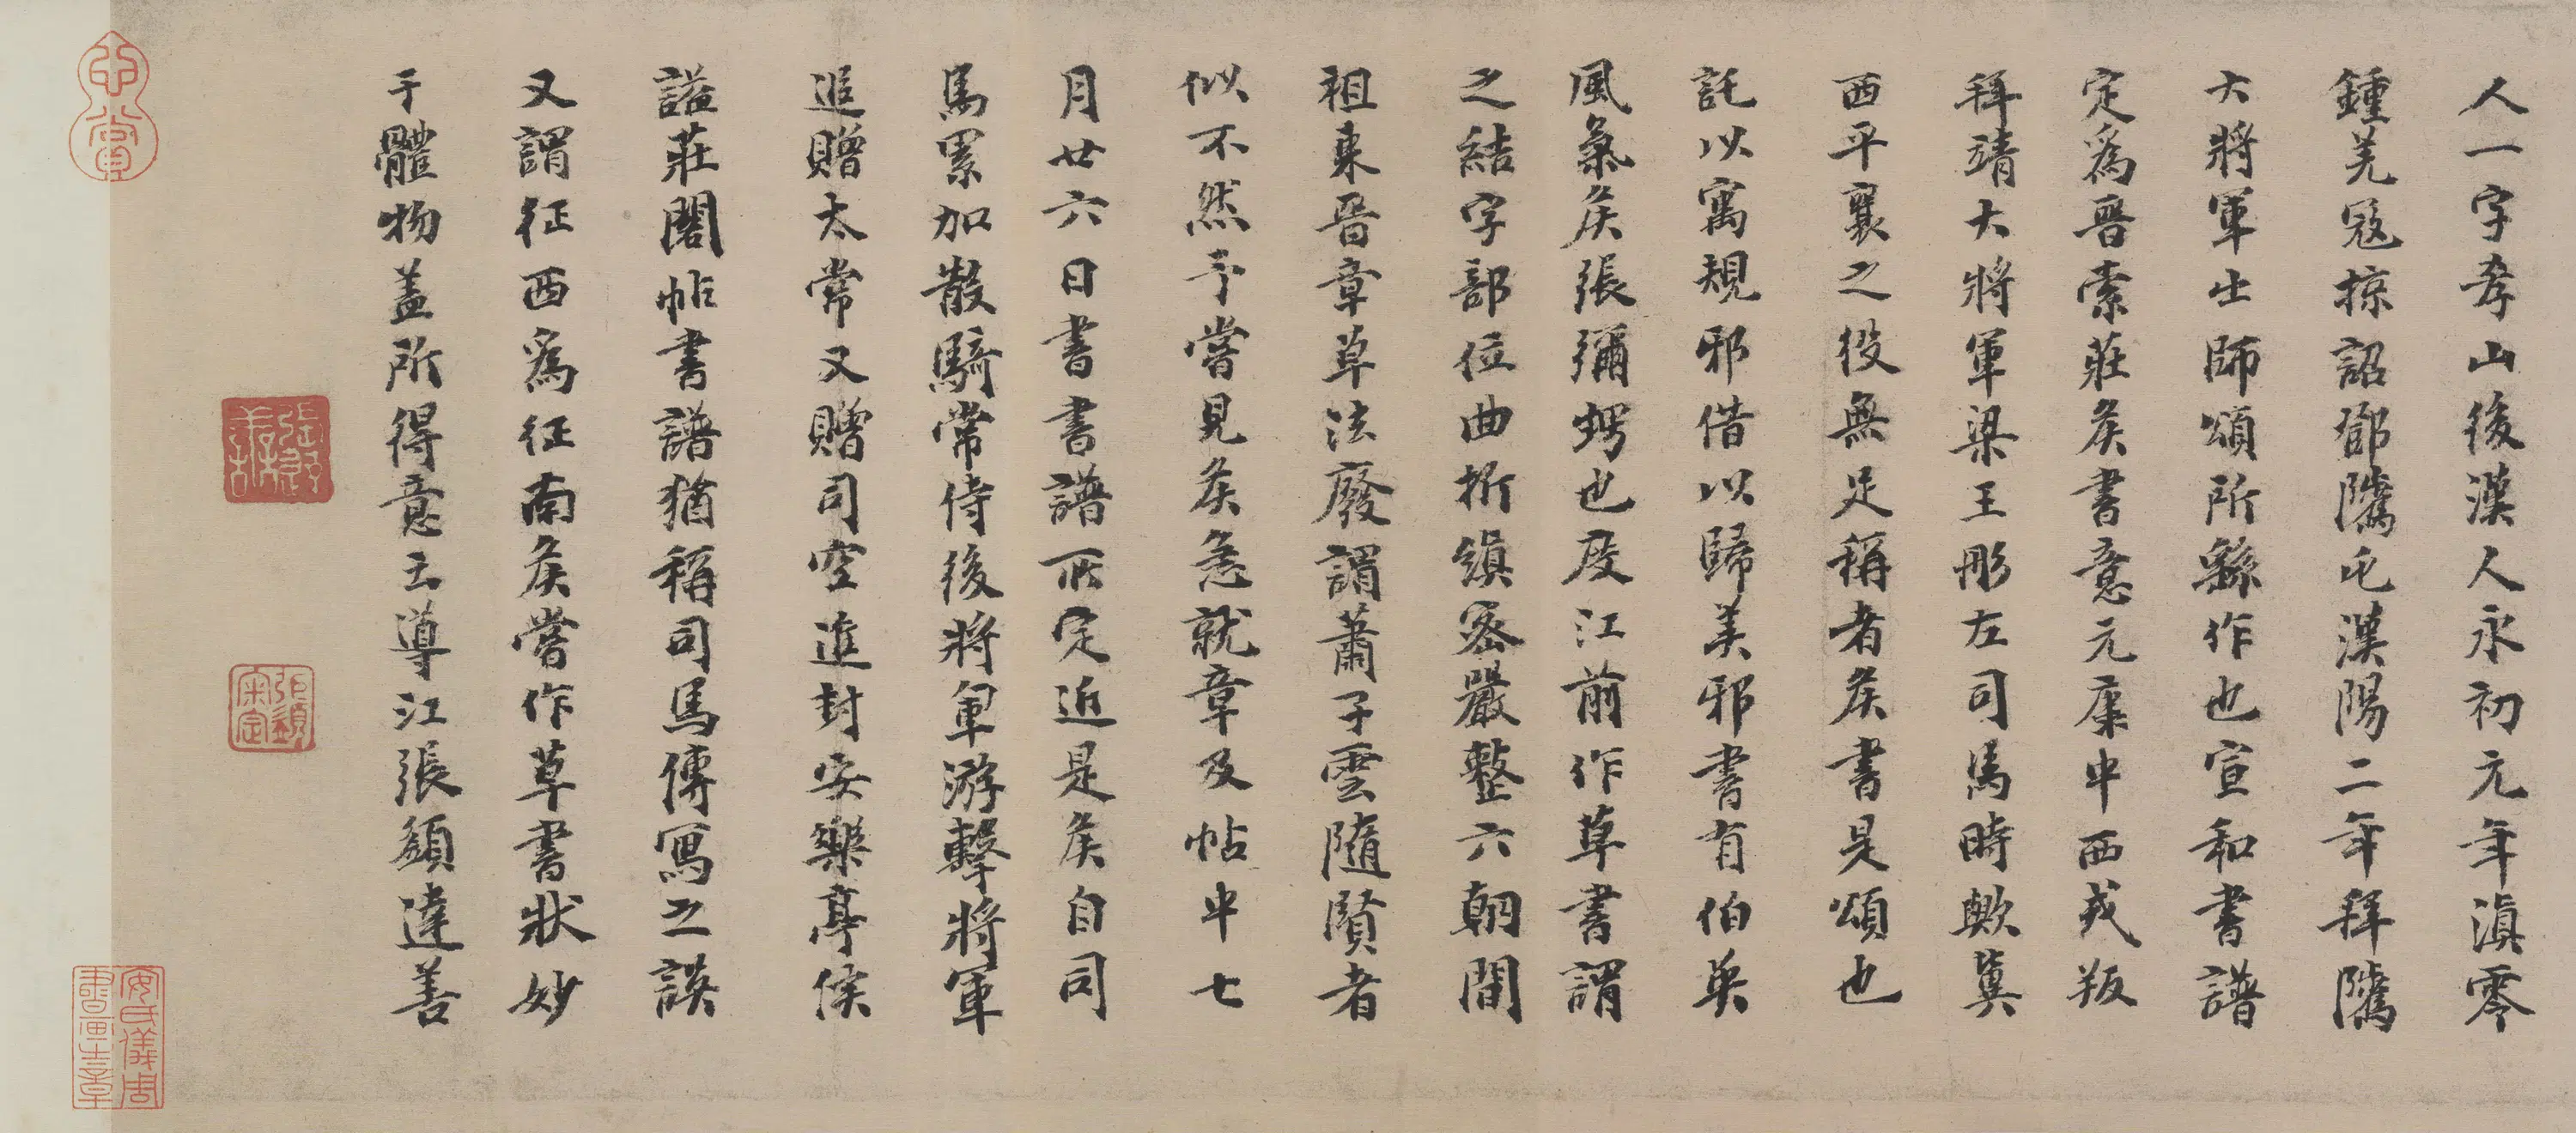 人一字孝山後漢人永初元年滇零
鍾羌寇掠詔鄧隲屯漢陽二年拜隲
大將軍出師頌所繇作也宣和書譜
定爲晉索莊矦書意元康中西戎叛
拜靖大將軍梁王肜左司馬時歟冀
西平襄之役無足稱者矦書是頌也
託以寓規邪借以歸美邪書有伯英
風氣矦張彌甥也度江前作草書謂
之結字部位曲折縝密嚴整六朝間
祖東晉章草法廢謂蕭子雲隨賢者
似不然予嘗見矦急就章及帖中七
月廿六日書書譜所定近是矦自司
馬累加散騎常侍後將軍游擊將軍
追贈太常又贈司空進封安樂亭侯
謚莊閣帖書譜猶稱司馬傳寫之誤
又謂征西爲征南矦嘗作草書狀妙
于體物蓋所得意云導江張𩓣達善
心賞
安氏儀周書畫之章